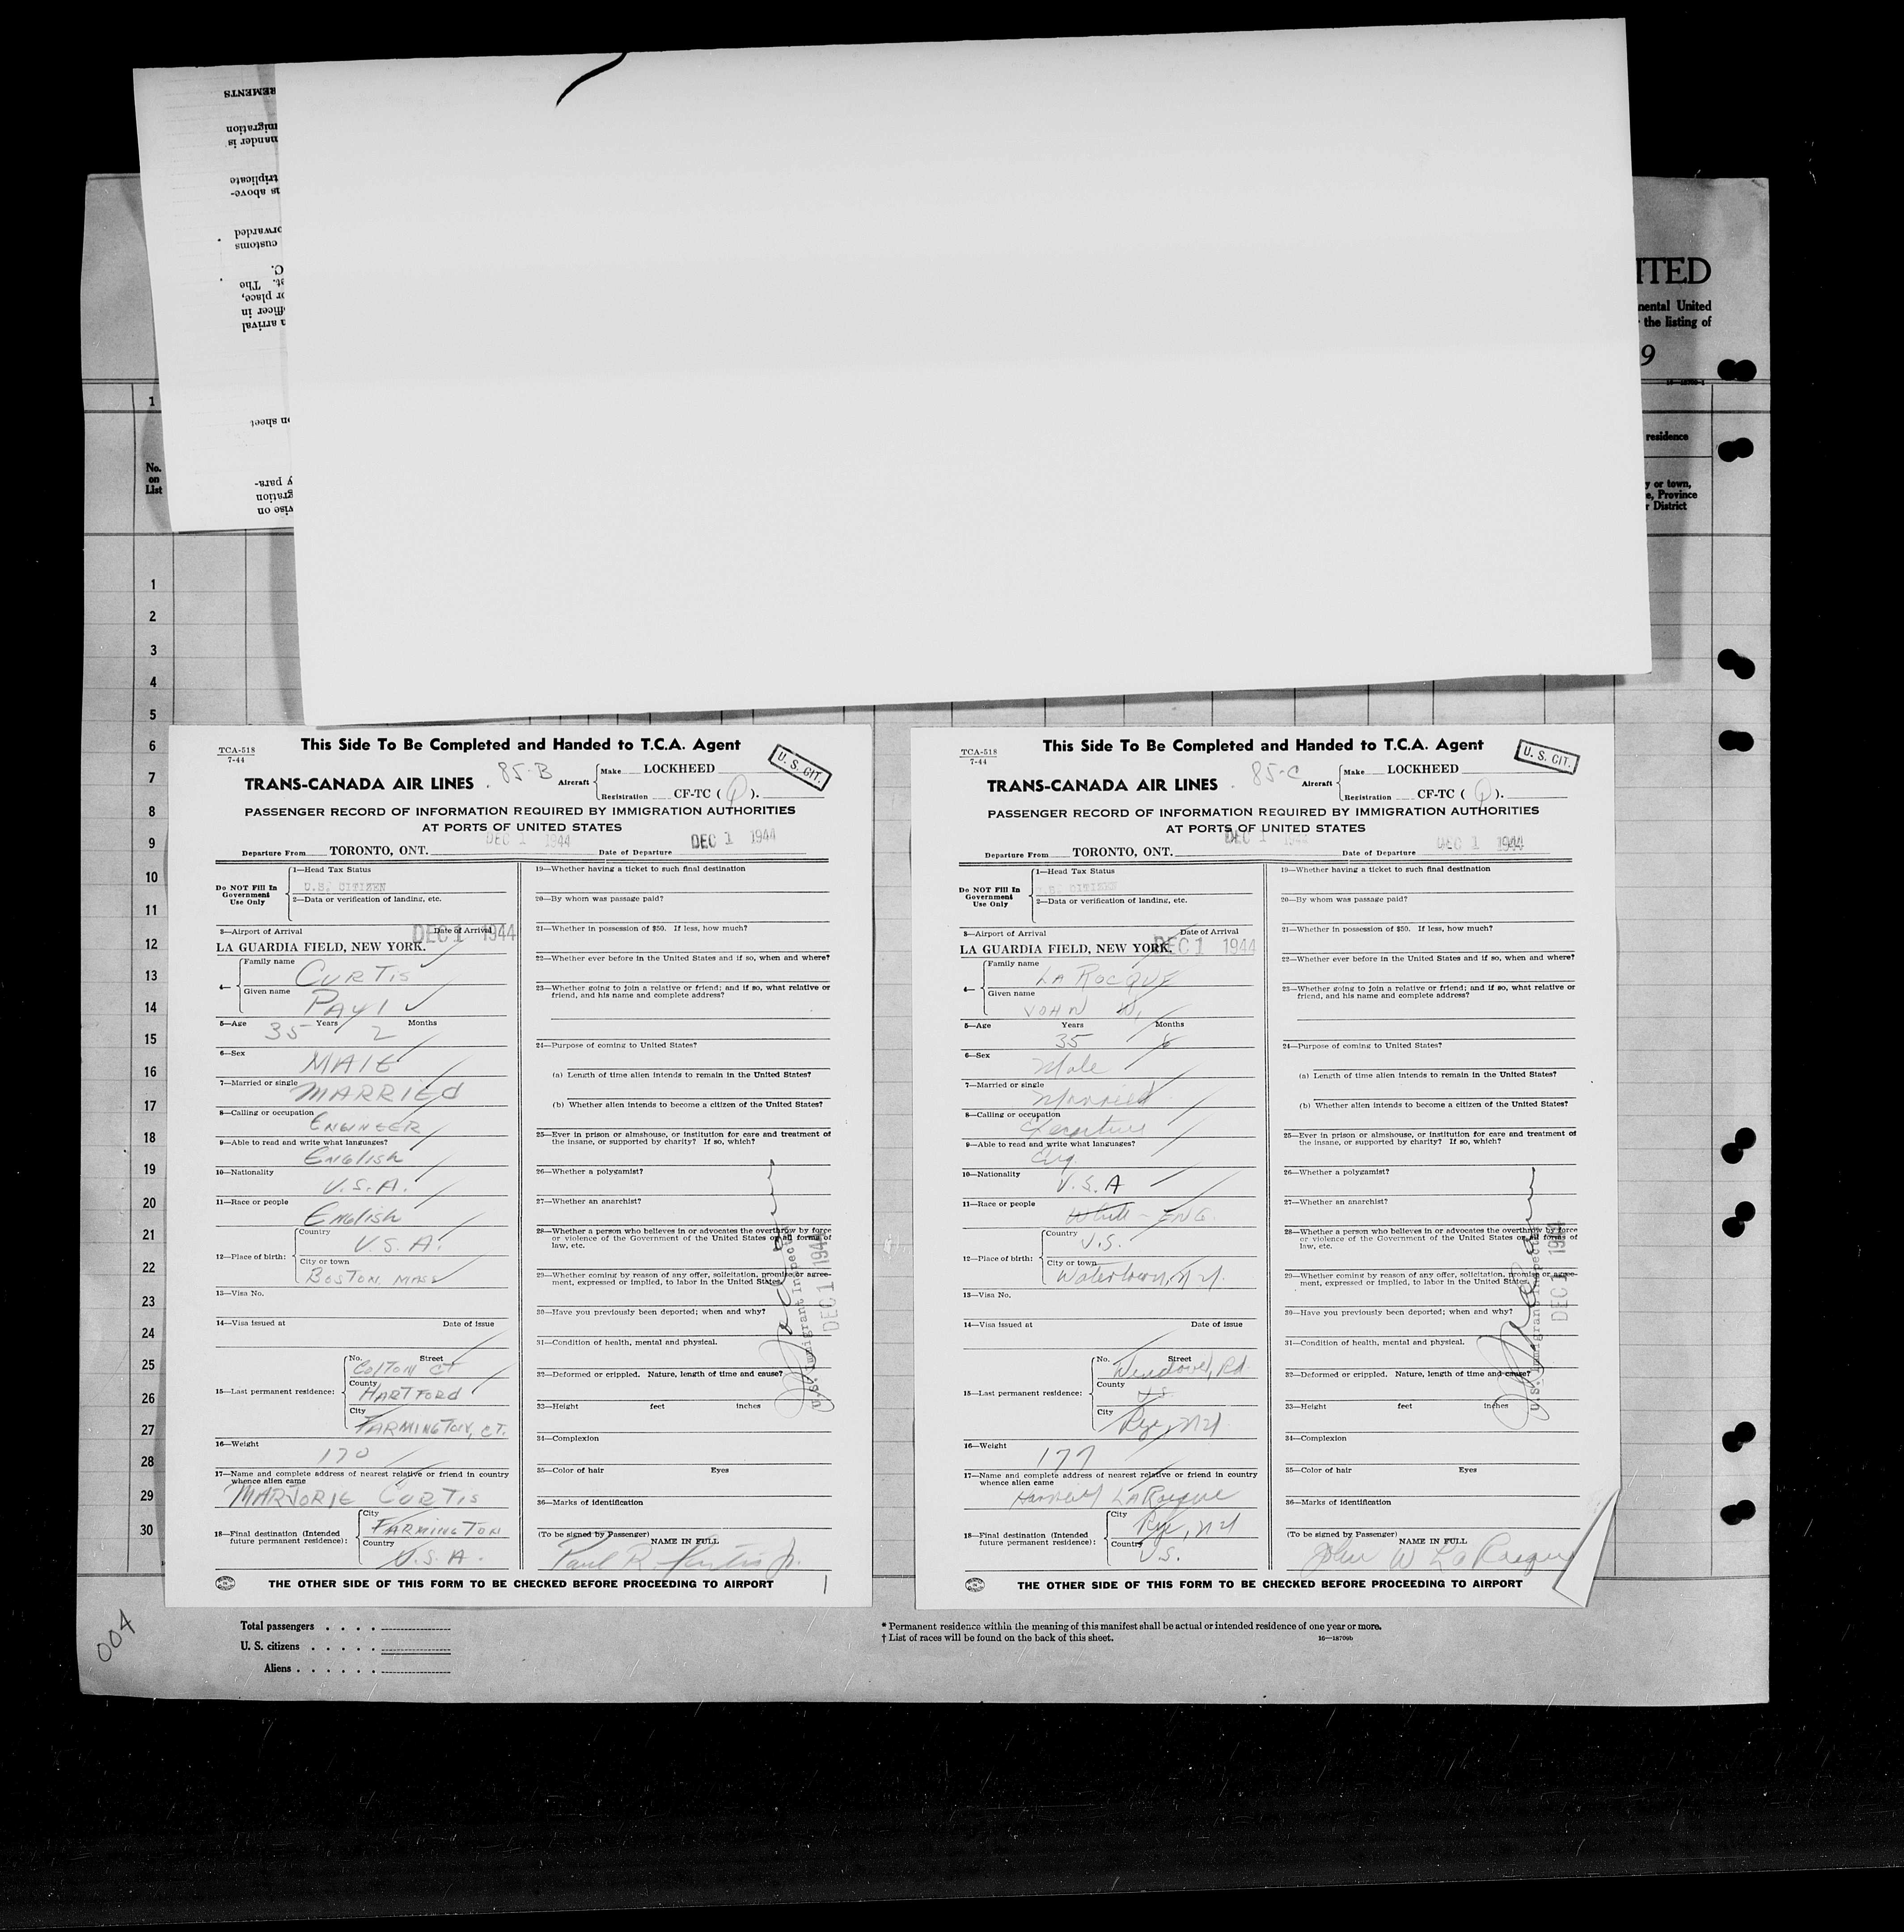 ITED
nental United
the listing of
9
1
residence
No.
on
List
y or town,
e, Province
r District
REMENTS
migration
mander is
triplicate
as above-
orwarded
customs
C.
st. The
or place,
officer in
n arrival
on sheet
y para-
gration
vise on
1
2
3
4
5
6
7
8
9
10
11
12
13
14
15
16
17
18
19
20
21
22
23
24
25
26
27
28
29
30
TCA-518
7-44
This Side To Be Completed and Handed to T.C.A. Agent
U. S. CIT.
TRANS-CANADA AIR LINES . 85-B
Aircraft
Make LOCKHEED
Registration CF-TC ( Q ).
PASSENGER RECORD OF INFORMATION REQUIRED BY IMMIGRATION AUTHORITIES
AT PORTS OF UNITED STATES
Departure From TORONTO, ONT. DEC 1 1944 Date of Departure DEC 1 1944
Do NOT Fill In
Government
Use Only
1—Head Tax Status
U.S. CITIZEN
2—Data or verification of landing, etc.
3—Airport of Arrival Date of Arrival
LA GUARDIA FIELD, NEW YORK. DEC 1 1944
4—
Family name
CURTIS
Given name
PAUL
5—Age 35 Years 2 Months
6—Sex
MALE
7—Married or single
MARRIED
8—Calling or occupation
ENGINEER
9—Able to read and write what languages?
ENGLISH
10—Nationality
U.S.A.
11—Race or people
ENGLISH
12—Place of birth:
Country
U.S.A.
City or town
BOSTON, MASS
13—Visa No.
14—Visa issued at Date of issue
15—Last permanent residence:
No. Street
COLTON CT
County
HARTFORD
City
FARMINGTON, CT.
16—Weight
170
17—Name and complete address of nearest relative or friend in country
whence alien came
MARJORIE CURTIS
18—Final destination (Intended
future permanent residence):
City
FARMINGTON
Country
U.S.A.
19—Whether having a ticket to such final destination
20—By whom was passage paid?
21—Whether in possession of $50. If less, how much?
22—Whether ever before in the United States and if so, when and where?
23—Whether going to join a relative or friend; and if so, what relative or
friend, and his name and complete address?
24—Purpose of coming to United States?
(a) Length of time alien intends to remain in the United States?
(b) Whether alien intends to become a citizen of the United States?
25—Ever in prison or almshouse, or institution for care and treatment of
the insane, or supported by charity? If so, which?
26—Whether a polygamist?
27—Whether an anarchist?
28—Whether a person who believes in or advocates the overthrow by force
or violence of the Government of the United States or all forms of
law, etc.
29—Whether coming by reason of any offer, solicitation, promise or agree-
ment, expressed or implied, to labor in the United States
30—Have you previously been deported; when and why?
31—Condition of health, mental and physical.
32—Deformed or crippled. Nature, length of time and cause?
33—Height feet inches
34—Complexion
35—Color of hair Eyes
36—Marks of identification
U.S. Immigrant Inspector
DEC 1 1944
(To be signed by Passenger) NAME IN FULL
Paul R Curtis Jr.
THE OTHER SIDE OF THIS FORM TO BE CHECKED BEFORE PROCEEDING TO AIRPORT
1
TCA-518
7-44
This Side To Be Completed and Handed to T.C.A. Agent
U. S. CIT.
TRANS-CANADA AIR LINES . 85-C
Aircraft
Make LOCKHEED
Registration CF-TC ( Q ).
PASSENGER RECORD OF INFORMATION REQUIRED BY IMMIGRATION AUTHORITIES
AT PORTS OF UNITED STATES
Departure From TORONTO, ONT. DEC 1 1944 Date of Departure DEC 1 1944
Do NOT Fill In
Government
Use Only
1—Head Tax Status
U.S. CITIZEN
2—Data or verification of landing, etc.
3—Airport of Arrival Date of Arrival
LA GUARDIA FIELD, NEW YORK. DEC 1 1944
4—
Family name
LA ROCQUE
Given name
JOHN W.
5—Age Years Months
35 8
6—Sex
Male
7—Married or single
Married
8—Calling or occupation
Executive
9—Able to read and write what languages?
Eng.
10—Nationality
U.S.A
11—Race or people
White - ENG.
12—Place of birth:
Country
U.S.
City or town
Watertown, N.Y.
13—Visa No.
14—Visa issued at Date of issue
15—Last permanent residence:
No. Street
Wendover, Rd.
County
U.S.
City
Rye, NY
16—Weight
177
17—Name and complete address of nearest relative or friend in country
whence alien came
LaRocque
18—Final destination (Intended
future permanent residence):
City
Rye, NY
Country
U.S.
19—Whether having a ticket to such final destination
20—By whom was passage paid?
21—Whether in possession of $50. If less, how much?
22—Whether ever before in the United States and if so, when and where?
23—Whether going to join a relative or friend; and if so, what relative or
friend, and his name and complete address?
24—Purpose of coming to United States?
(a) Length of time alien intends to remain in the United States?
(b) Whether alien intends to become a citizen of the United States?
25—Ever in prison or almshouse, or institution for care and treatment of
the insane, or supported by charity? If so, which?
26—Whether a polygamist?
27—Whether an anarchist?
28—Whether a person who believes in or advocates the overthrow by force
or violence of the Government of the United States or all forms of
law, etc.
29—Whether coming by reason of any offer, solicitation, promise or agree-
ment, expressed or implied, to labor in the United States
30—Have you previously been deported; when and why?
31—Condition of health, mental and physical.
32—Deformed or crippled. Nature, length of time and cause?
33—Height feet inches
34—Complexion
35—Color of hair Eyes
36—Marks of identification
U.S. Immigrant Inspector
DEC 1 1944
(To be signed by Passenger) NAME IN FULL
John W LaRocque
THE OTHER SIDE OF THIS FORM TO BE CHECKED BEFORE PROCEEDING TO AIRPORT
004
Total passengers . . . .
U. S. citizens . . . . .
Aliens . . . . . .
* Permanent residence within the meaning of this manifest shall be actual or intended residence of one year or more.
† List of races will be found on the back of this sheet. 16—18709b